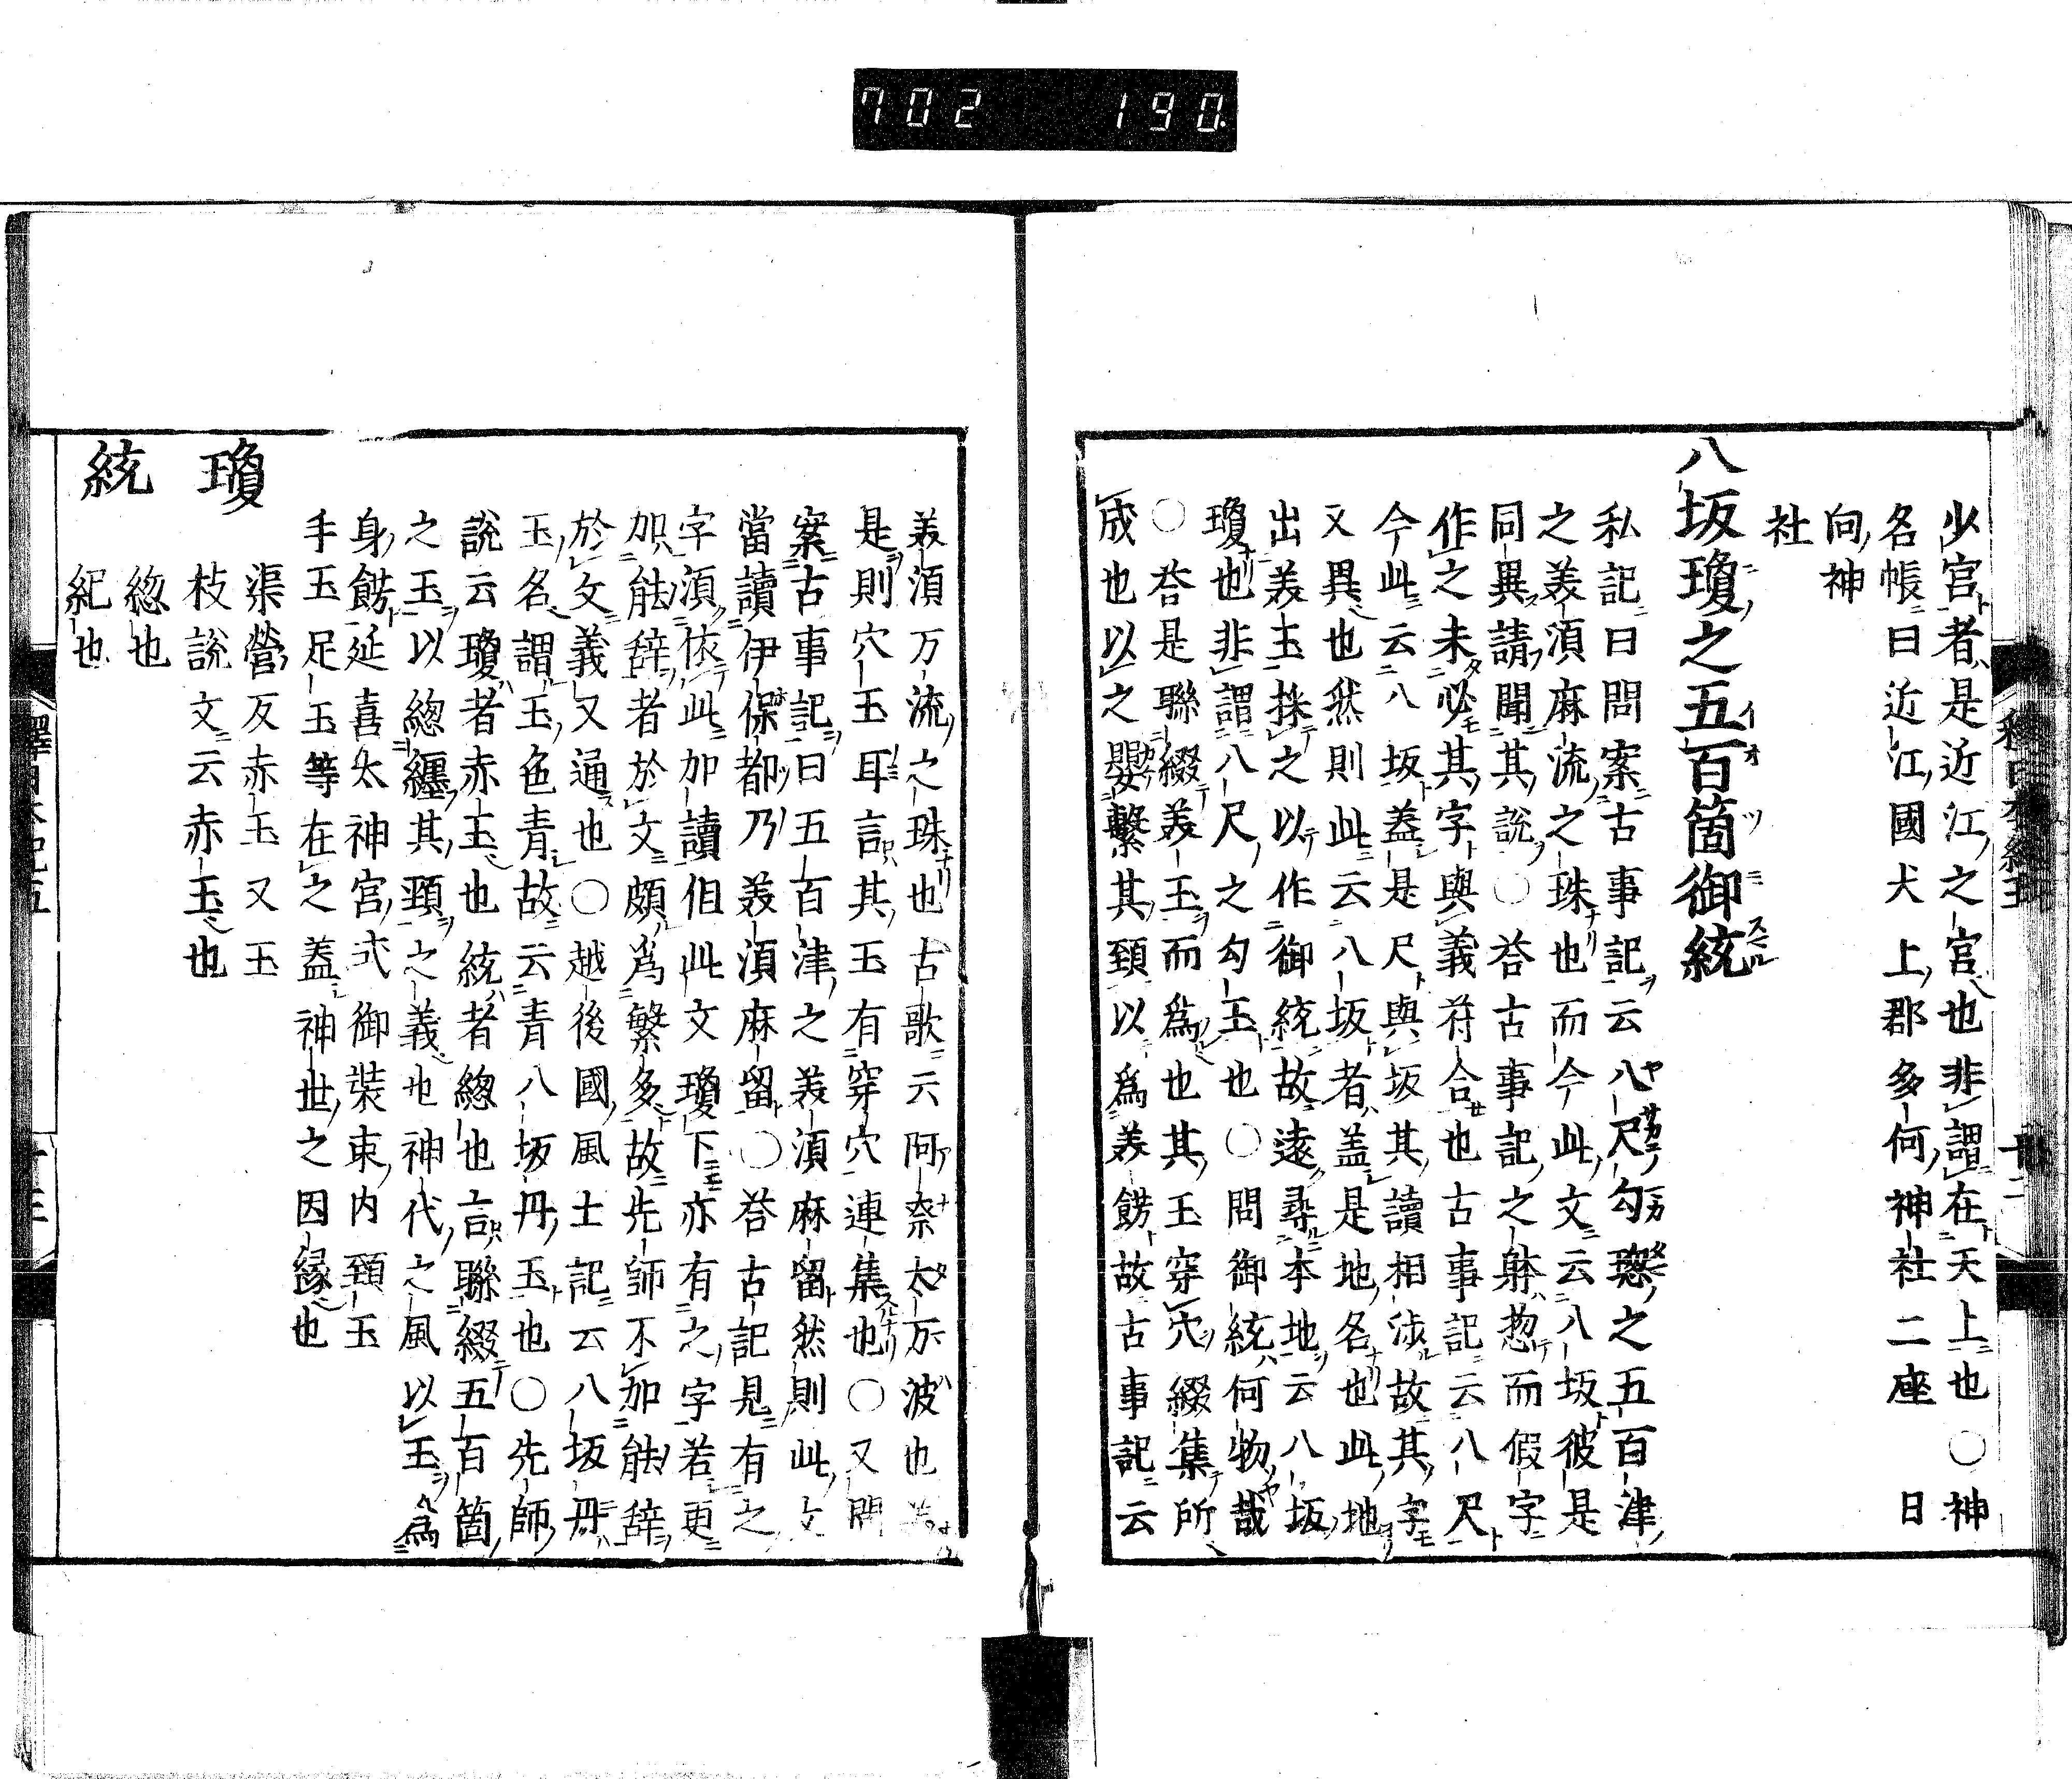 702 190
少宮者是近江之宮也非謂在天上也〇神
名帳曰近江國犬上郡多何神社二座 日
向神
社
八坂瓊之五百箇御統
私記曰問案古事記云八尺勾璁之五百津
之美須麻流之珠也而今此文云八坂彼是
同異請聞其說〇荅古事記之躰惣而假字
作之未必其字與義符合也古事記云八尺
今此云八坂蓋是尺與坂其讀相涉故其字
又異也然則此云八坂者蓋是地名也此地
出美玉採之以作御統故遠尋本地云八坂
瓊也非謂八尺之勾玉也〇問御統何物哉
〇荅是聯綴美玉而爲也其玉穿穴綴集所
成也以之嬰繫其頚以爲美餝故古事記云
美須万流之珠也古歌云阿奈太万波也
是則穴玉耳言其玉有穿穴連集也〇又問
案古事記曰五百津之美須麻留然則此文
當讀伊保都乃美須麻留〇荅古記見有之
字須依此加讀但此文瓊下亦有之字若更
加能辞者於文頗爲繁多故先師不加能辞
於文義又通也〇越後國風土記云八坂丹
玉名謂玉色青故云青八坂丹玉也〇先師
說云瓊者赤玉也統者總也言聯綴五百箇
之玉以總纒其頚之義也神代之風以玉爲
身餝延喜太神宮式御裝束内頚玉
手玉足玉等在之蓋神世之因縁也
瓊
渠營反赤玉又玉
枝說文云赤玉也
統
緫也
紀也